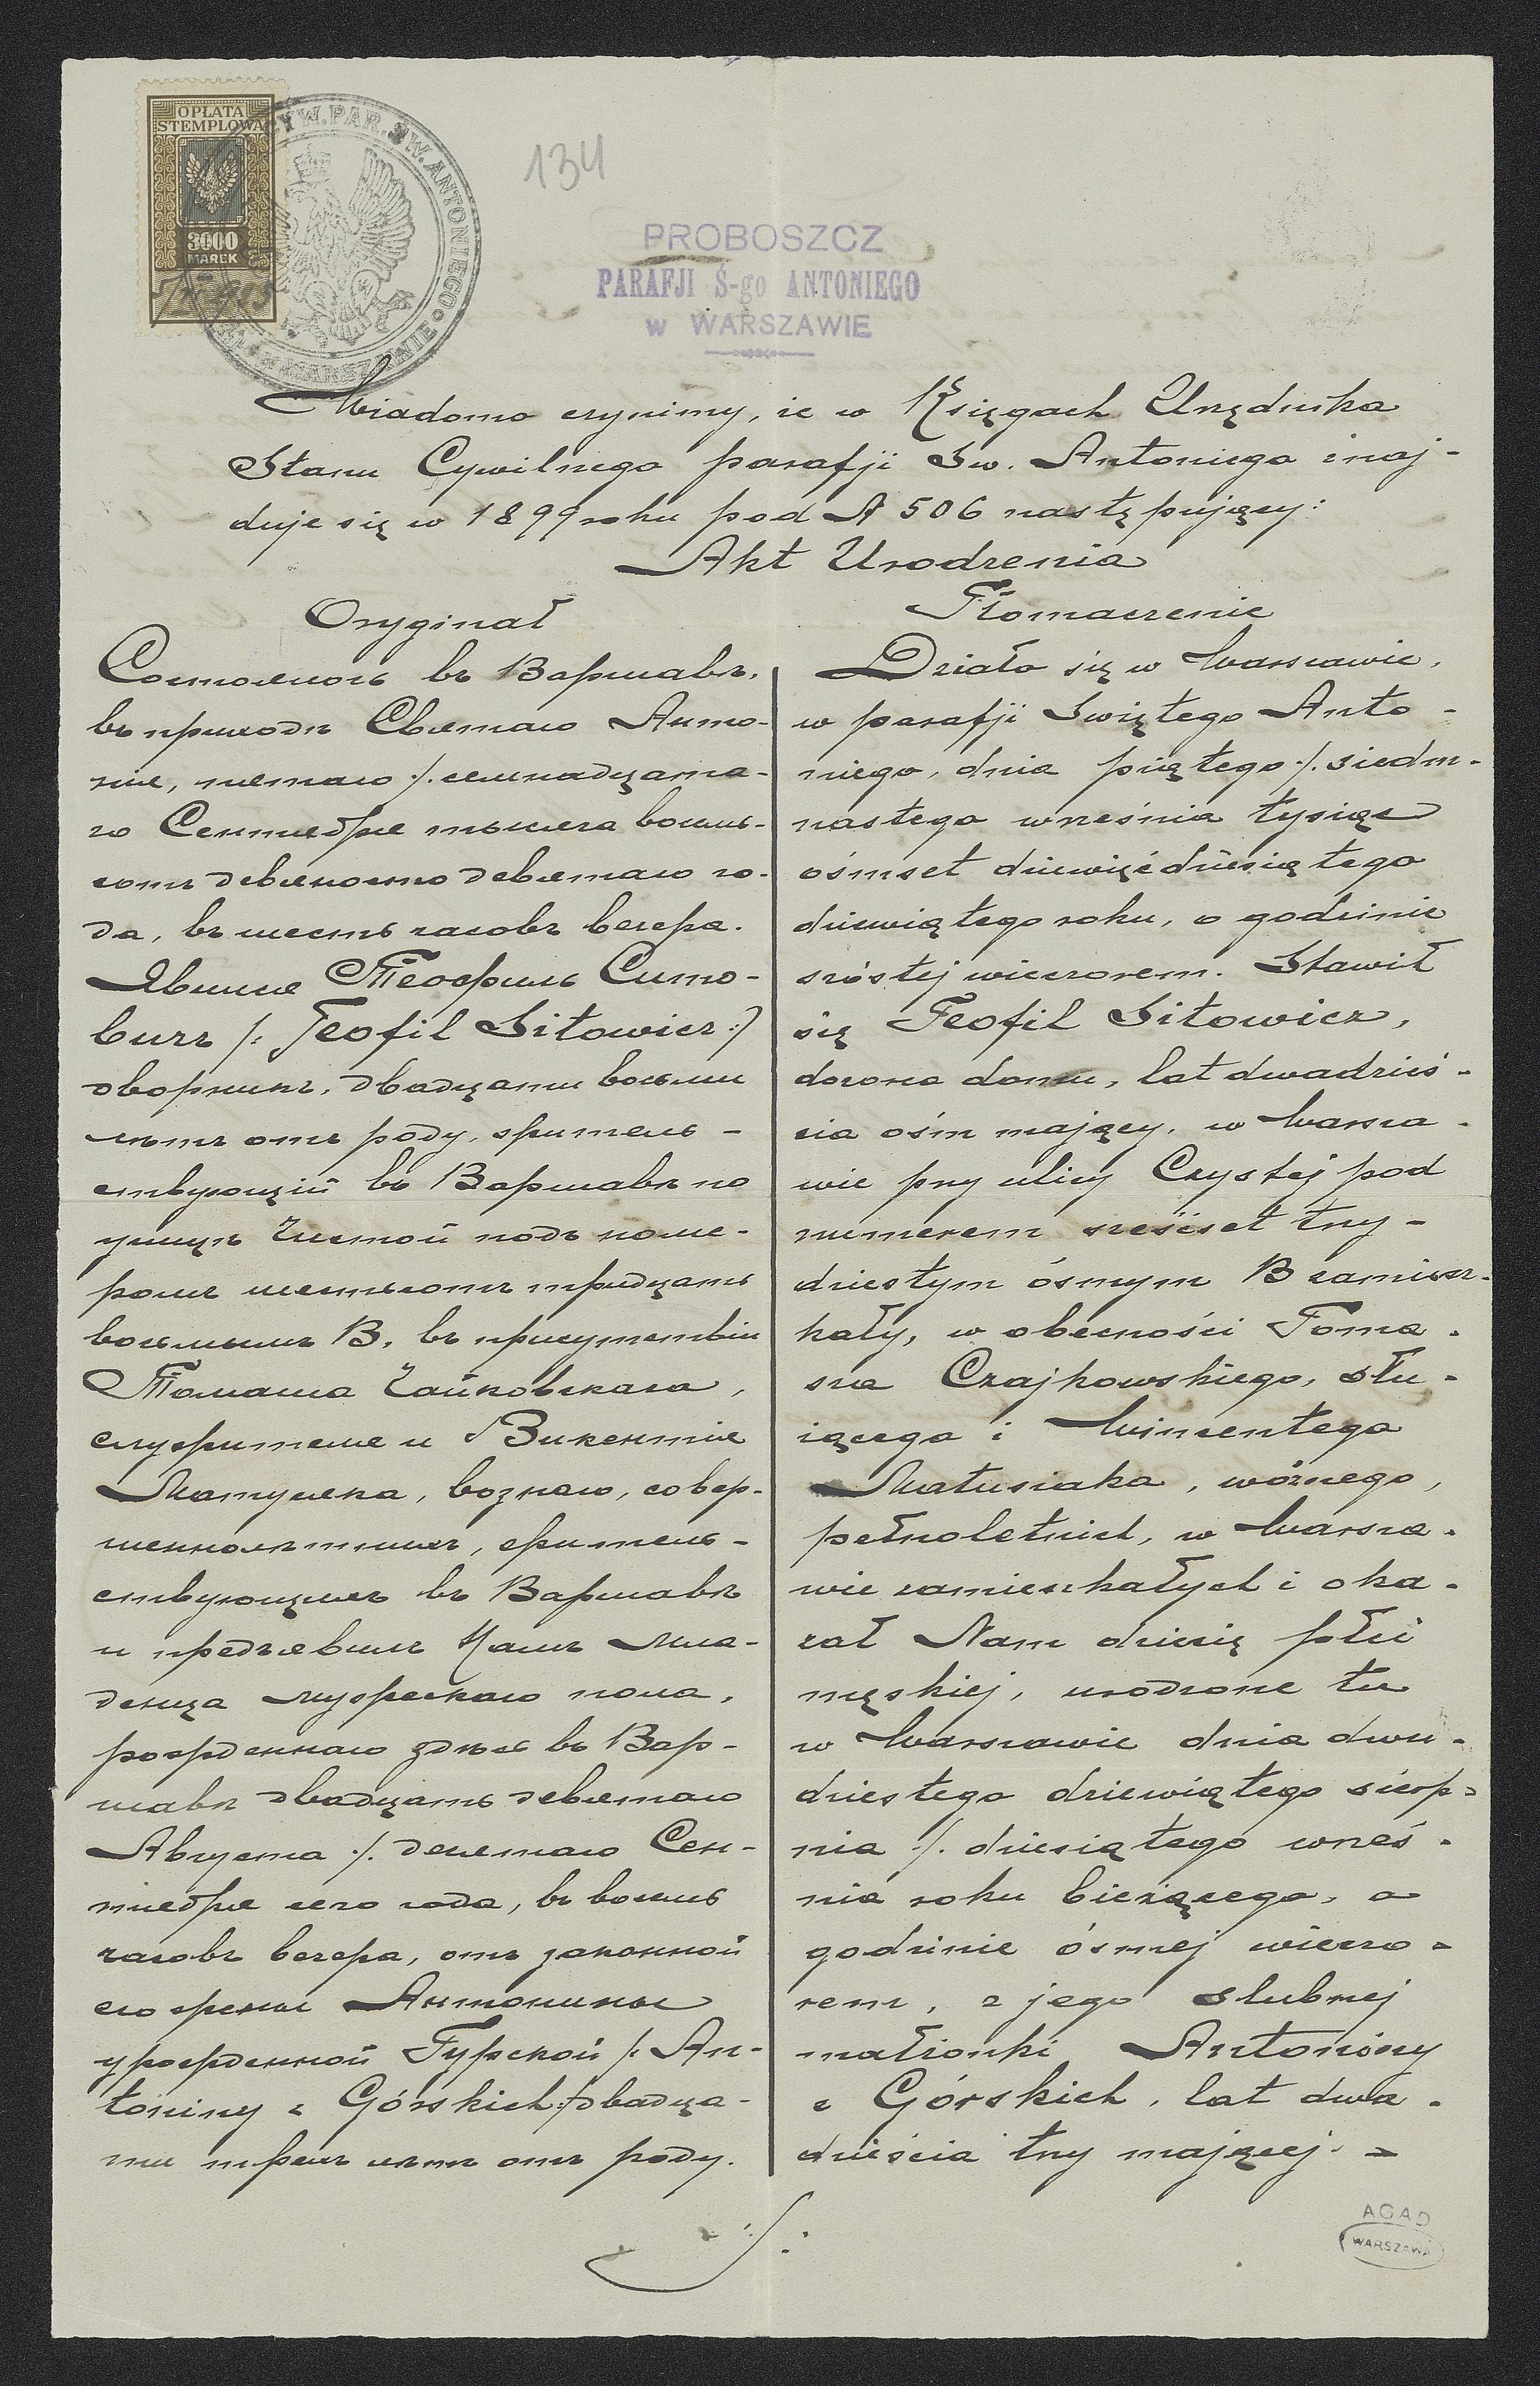 OPŁATA
STEMPLOWA
3000
MAREK
CYW. PAR. ŚW. ANTONIEGO
W WARSZAWIE
134
PROBOSZCZ
PARAFJI Ś-go ANTONIEGO
w WARSZAWIE
Wiadomo czynimy, że w Księgach Urzędnika
Stanu Cywilnego parafji Św. Antoniego znaj-
duje się w 1899 roku pod № 506 następujący:
Akt Urodzenia
Oryginał
Состоялось въ Варшавѣ,
въ приходѣ Святаго Анто-
нія, пятаго /. семнадцата-
го Сентября тысяча восемь-
сотъ девяносто девятаго го-
да, въ шесть часовъ вечера.
Явился Теофиль Сито-
вичъ /: Teofil Sitowicz :/
дворникъ, двадцати восьми
лѣтъ отъ роду, житель-
ствующій въ Варшавѣ по
улицѣ Чистой подъ номе-
ромъ шестьсотъ тридцать
восьмымъ В, въ присутствіи
Томаша Чайковскаго,
служителя и Викентія
Матусяка, вознаго, совер-
шеннолѣтнихъ, житель-
ствующихъ въ Варшавѣ
и предъявилъ Намъ мла-
денца мужескаго пола,
рожденнаго здѣсь въ Вар-
шавѣ двадцать девятаго
Августа /. десятаго Сен-
тября сего года, въ восемь
часовъ вечера, отъ законной
его жены Антонины
урожденной Гурской /: An-
toniny z Górskich :/ двадца-
ти трехъ лѣтъ отъ роду.
Tłomaczenie
Działo się w Warszawie,
w parafji Świętego Anto-
niego, dnia piątego /. siedm-
nastego września tysiąc
ośmset dziewięćdziesiątego
dziewiątego roku, o godzinie
szóstej wieczorem. Stawił
się Teofil Sitowicz,
dozorca domu, lat dwadzieś-
cia ośm mający, w Warsza-
wie przy ulicy Czystej pod
numerem sześćset trzy-
dziestym ósmym B zamiesz-
kały, w obecności Toma-
sza Czajkowskiego, słu-
żącego i Wincentego
Matusiaka, woźnego,
pełnoletnich, w Warsza-
wie zamieszkałych i oka-
zał Nam dziecię płci
męskiej, urodzone tu
w Warszawie dnia dwu-
dziestego dziewiątego sierp-
nia /. dziesiątego wrześ-
nia roku bieżącego, o
godzinie ósmej wieczo-
rem, z jego ślubnej
małżonki Antoniny
z Górskich, lat dwa-
dzieścia trzy mającej. =
AGAD
WARSZAWA